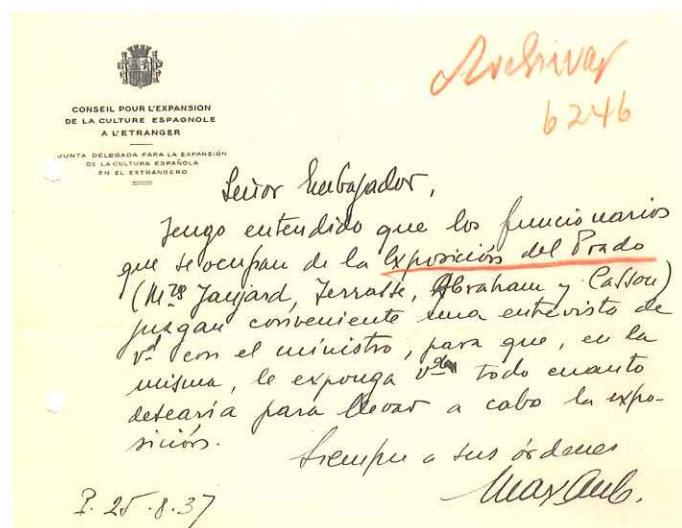 Archivar
6246
CONSEIL POUR L'EXPANSION
DE LA CULTURE ESPAGNOLE
A L'ETRANGER
JUNTA DELEGADA PARA LA EXPANSIÓN
DE LA CULTURA ESPAÑOLA
EN EL EXTRANGERO
Señor Embajador,
Tengo entendido que los funcionarios
que se ocupan de la Exposición del Prado
(Mrs Jaujard, Terrasse, Abraham y Cassou)
juzgan conveniente una entrevista de
vd con el ministro, para que, en la
misma, le exponga vd todo cuanto
desearía para llevar a cabo la expo-
sición.
Siempre a sus órdenes
Max Aub.
P. 25.8.37